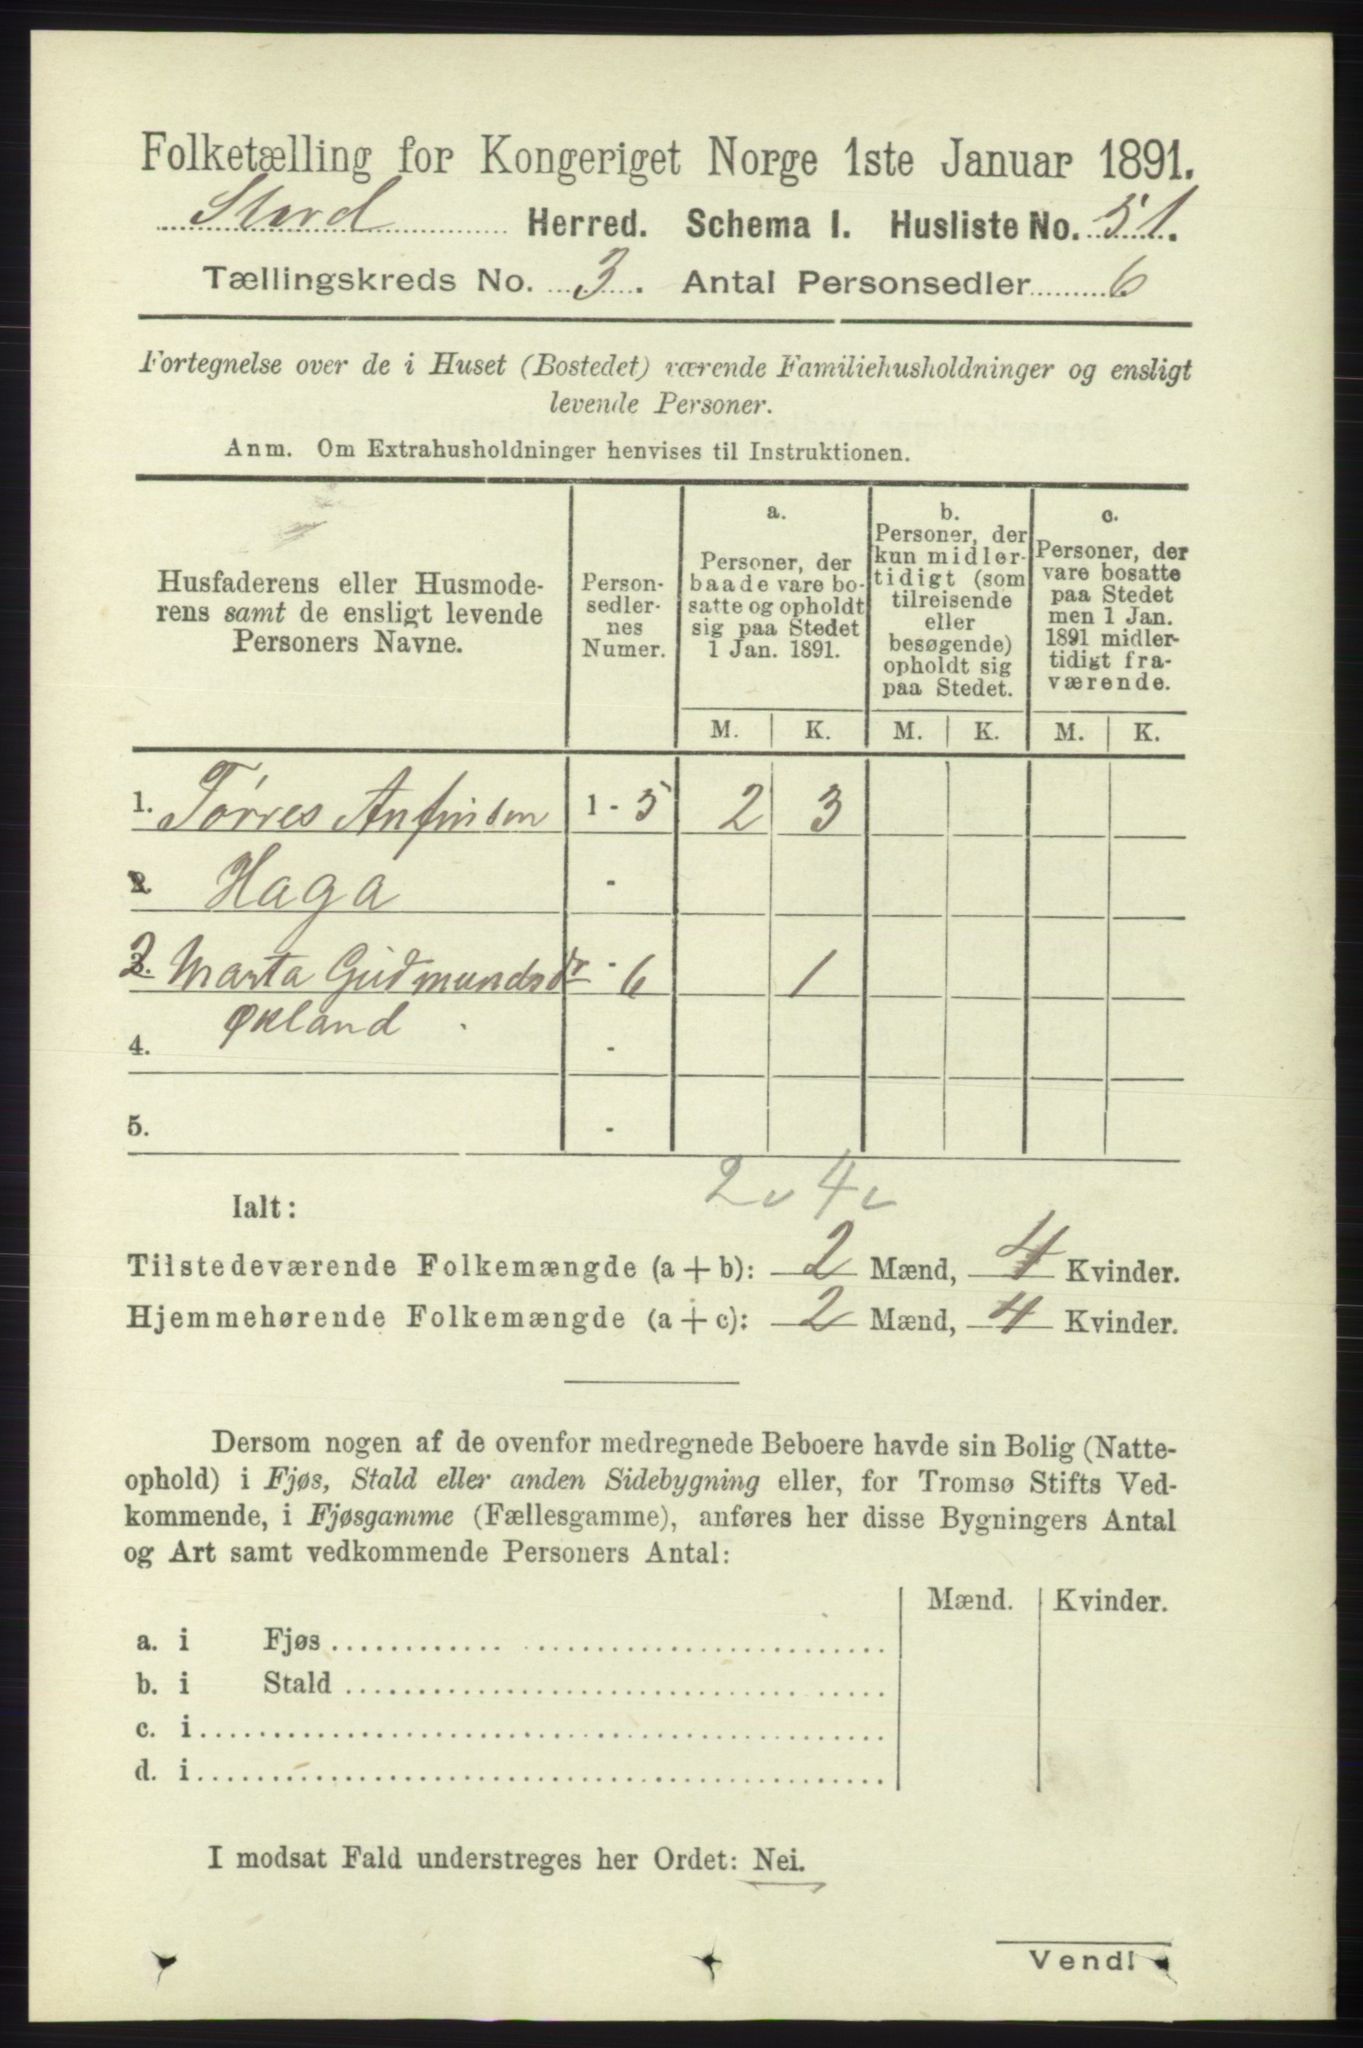 Folketælling for Kongeriget Norge 1ste Januar 1891.
Stord Herred. Schema I. Husliste No. 51.
Tællingskreds No. 3. Antal Personsedler 6
Fortegnelse over de i Huset (Bostedet) værende Familiehusholdninger og ensligt
levende Personer.
Anm. Om Extrahusholdninger henvises til Instruktionen.
Husfaderens eller Husmode-
rens samt de ensligt levende
Personers Navne.
Person-
sedler-
nes
Numer.
a.
Personer, der
baade vare bo-
satte og opholdt
sig paa Stedet
1 Jan. 1891.
b.
Personer, der
kun midler-
tidigt (som
tilreisende
eller
besøgende)
opholdt sig
paa Stedet.
c.
Personer, der
vare bosatte
paa Stedet
men 1 Jan.
1891 midler-
tidigt fra-
værende.
M. K. M. K. M. K.
1. Tørres Anfinsen 1 - 5 2 3
2. Haga -
2 3. Marta Gudmundsdr - 6 1
Økland
4. -
5. -
2 4
Ialt:
Tilstedeværende Folkemængde (a + b): 2 Mænd, 4 Kvinder.
Hjemmehørende Folkemængde (a + c): 2 Mænd, 4 Kvinder.
Dersom nogen af de ovenfor medregnede Beboere havde sin Bolig (Natte-
ophold) i Fjøs, Stald eller anden Sidebygning eller, for Tromsø Stifts Ved-
kommende, i Fjøsgamme (Fællesgamme), anføres her disse Bygningers Antal
og Art samt vedkommende Personers Antal:
Mænd. Kvinder.
a. i Fjøs
b. i Stald
c. i
d. i
I modsat Fald understreges her Ordet: Nei.
Vend!